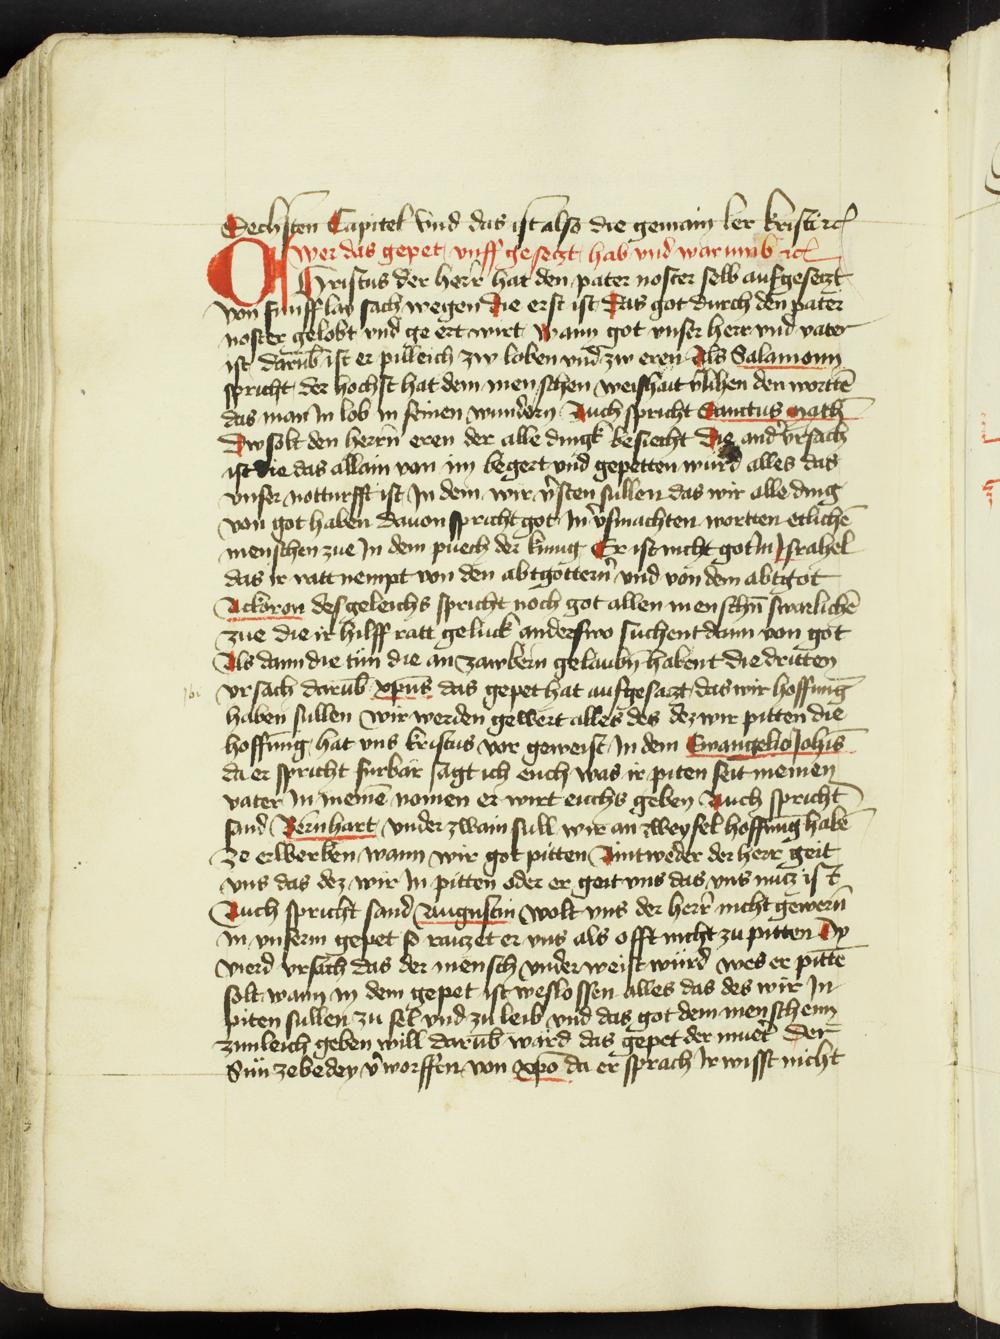 Sechsten Capitel vnd das ist also die gemain ler kristi etc
Wer das gepet vnff gesetzt hab vnd warumb etc
Christus der herr hat den pater noster selb aufgesetzt
von funfflay sach wegen Die erst ist Das got durch den pater
noster gelobt vnd ge ert wirt wann got vnser herr vnd vater
ist darūb ist er pilleich zw loben vnd zw eren Als Salamonn
spricht der hochst hat dem menschen weishait v̉lihen den worttē
das man In lob in seinen wundern Auch spricht Sanctus math̄
Dw solt den herrn̄ eren der alle dingk besiecht Die and̉ vrsach
ist die das allain von im begert vnd gepetten wurd alles das
vnser notturfft ist In dem wir v̉sten sullen das wir alle ding
von got haben dauon spricht got In v̉smachten wortten etlichē
menschen zue In dem puech der kunig Er ist nicht got in Israhel
das ir ratt nempt von den abtgottern̄ vnd von dem abtgot
Ackoron desgeleichs spricht noch got allen menschn̄ swarlichē
zue die ir hilff ratt geluck anderswo suchent dann von got
Als dann die tün die an zawbern gelaubn̄ habent die dritten
vrsach darūb xp̄us das gepet hat aufgesatzt das wir hoffnūg
haben sullen wir werden gewert alles des dez wir pitten die
hoffnūg hat vns kristus vor geweist In dem Ewangelio Joh̄is
da er spricht furbar sagt ich euch was ir piten seit meinen
vater In meinē nomen er wirt euchs geben Auch spricht
sand Bernhart vnder zwain sull wir an zweyfel hoffnūg habē
ze erwerben wann wir got pitten Aintweder der herr geit
vns das dez wir In pitten oder er geit vns das vns nutz ist
Auch spricht sand Augustin wolt vns der herr̄ nicht gewern̄
in vnserm gepet so raitzet er vns als offt nicht zu pitten Dy
vierd vrsach das der mensch vnderweist würd wes er pittē
solt wann in dem gepet ist weslossen alles das des wir In
piten sullen zu sel vnd zu leib vnd das got dem menschenn
zimleich geben will darūb ward das gepet der muet̉ Der
Sün zebedey v̉worffen von xp̄o da er sprach Ir wisst nicht